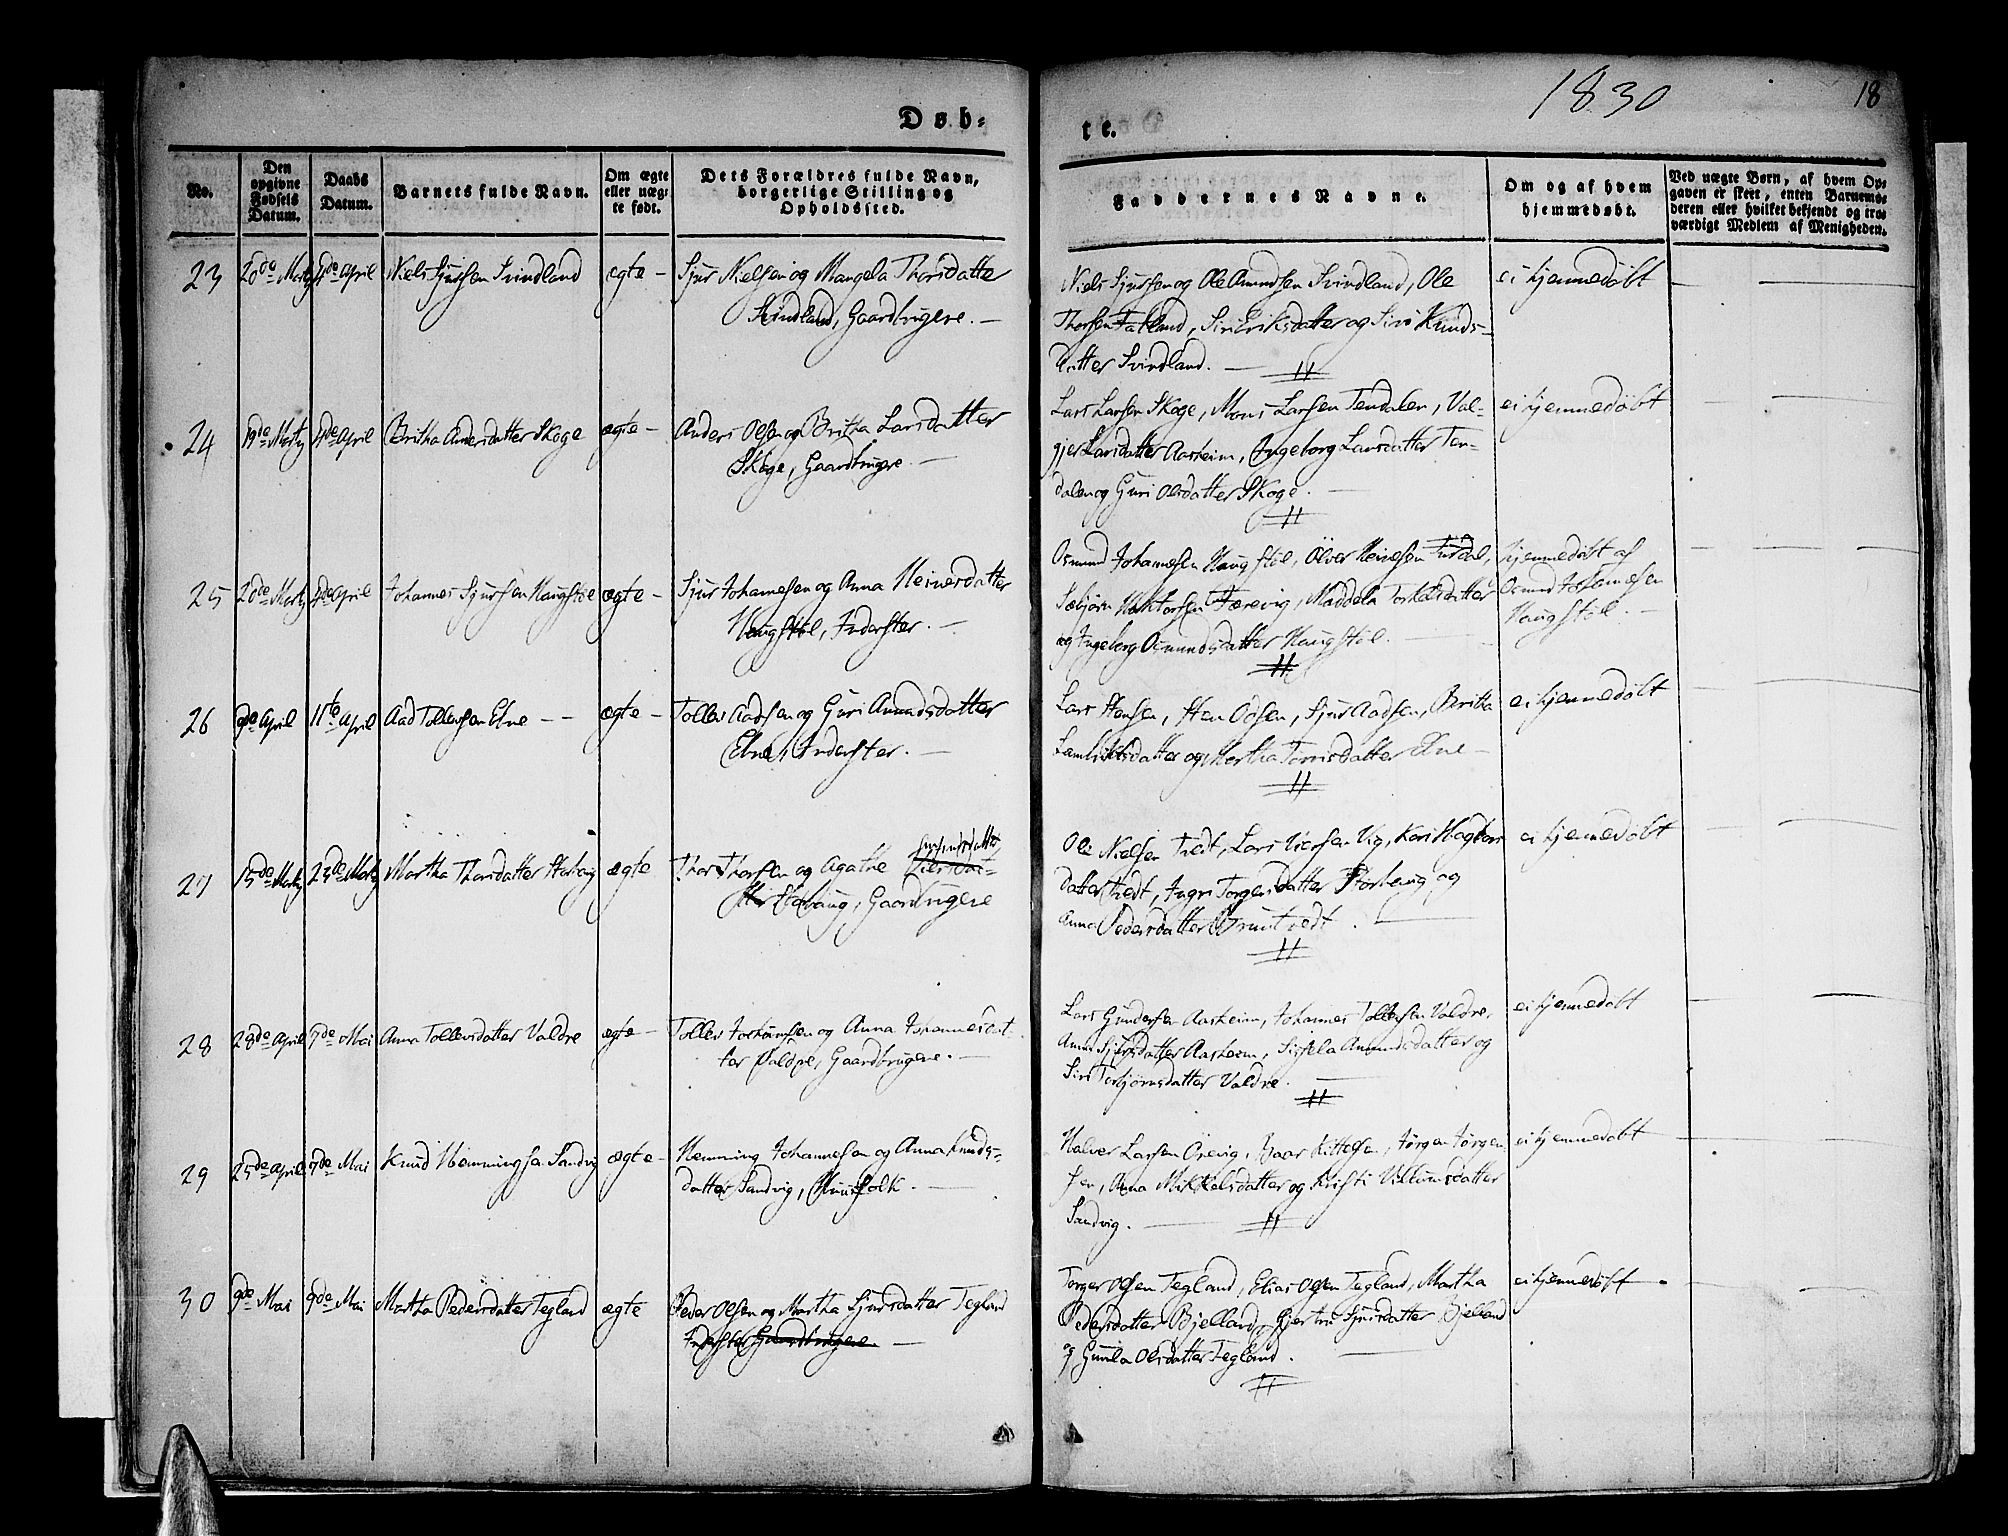 1830
18
Døb-
te.
No.
Den opgivne Fødsels Datum.
Daabs Datum.
Barnets fulde Navn.
Om ægte eller uægte født.
Dets Forældres fulde Navn, borgerlige Stilling og Opholdssted.
Faddernes Navne.
Om og af hvem hjemmedøbt.
Ved uægte Børn, af hvem Opgaven er skeet, enten Barnemoderen eller hvilket bekjendt og troværdigt Medlem af Menigheden.
23 20de Martz 4de April Niels Sjursen Svindland ægte - Sjur Nielsen og Mangela Thorsdatter
Svindland, Gaardbrugere. -
Niels Sjursen og Ole Amundsen Svindland, Ole
Thorsen Fatland, Siri Eriksdatter og Siri Knuds-
datter Svindland. -
ei hjemmedøbt
24 19de Martz 4de April Britha Andersdatter Skoge ægte - Anders Olsen og Britha Larsdatter
Skoge, Gaardbrugere. -
Lars Larsen Skoge, Mons Larsen Tendalen, Val-
gjer Larsdatter Aasheim, Ingeborg Larsdatter Ten-
dalen og Guri Olsdatter Skoge. -
ei hjemmedøbt
25 20de Martz 4de April Johannes Sjursen Haugstøl ægte - Sjur Johannesen og Anna Heinesdatter
Haugstøl, Inderster. -
Osmund Johannesen Haugstøl, Ölver Heinesen
Sæbjørn Færevig, Maddela Torkelsdatter
og Ingeborg Osmundsdatter Haugstøl. -
hjemmedøbt af
Osmund Johannesen
Haugstøl. -
26 9de April 11te April Aad Tollevsen Etne - - ægte - Tollev Aadsen og Guri Amundsdatter
Etne, Inderster. -
Lars Stensen, Sten Odsen, Sjur Aadsen, Britha
og Martha Tørrisdatter Etne -
ei hjemmedøbt
27 15de Martz 23de Martz Martha Thorsdatter ægte Thor Thorsen og Agathe
Gaardbrugere
Ole Nielsen Tvedt, Lars Vig, Kari
datter Tvedt, Ingri Torgersdatter og
Anna Pedersdatter Gruntvedt. -
ei hjemmedøbt
28 28de April 7de Mai Anna Tollevsdatter Valdre ægte - Tollev Johansen og Anna Johannesdat-
ter Valdre, Gaardbrugere. -
Lars Gundersen Aasheim, Johannes Tollefsen Valdre,
Anna Sjursdatter Aasheim, Sissela Amundsdatter og
Siri Torbjørnsdatter Valdre. -
ei hjemmedøbt
29 25de April 7de Mai Knud Hemmingsen Sandvig ægte - Hemming Johannesen og Anna Knuds-
datter Sandvig, Huusfolk. -
Halver Larsen Ørevig, Baar Kittelsen, Jørgen Jørgen-
sen, Anna Mikkelsdatter og Kristi Villumsdatter
Sandvig. -
ei hjemmedøbt
30 9de Mai 9de Mai Martha Pedersdatter Tegland ægte Peder Olsen og Martha Sjursdatter Tegland
Inderster Gaardbrugere. -
Torger Olsen Tegland, Elias Olsen Tegland, Martha
Pedersdatter Bjelland, Gjertru Sjursdatter Bjelland
og Gunla Olsdatter Tegland. -
ei hjemmedøbt